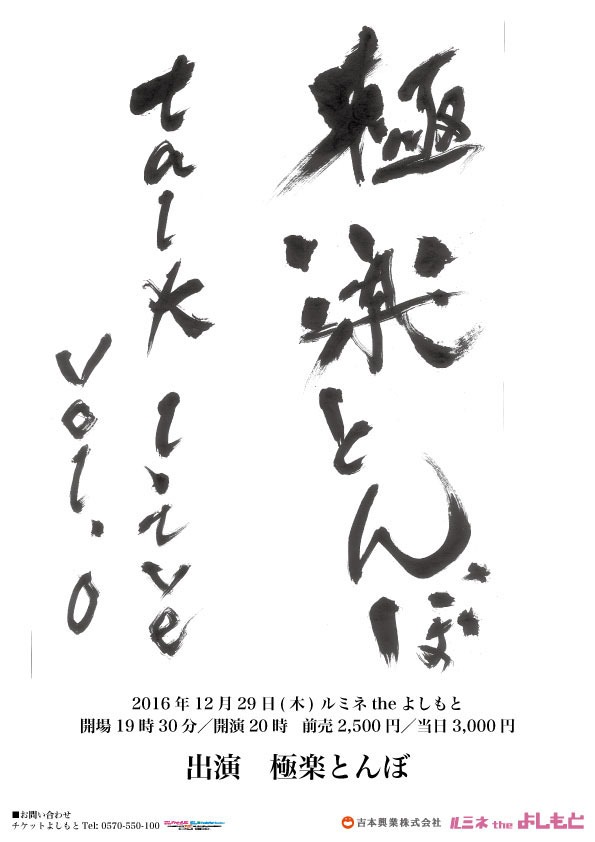 極楽とんぼ
talk live
vol.0
2016年12月29日(木) ルミネtheよしもと
開場19時30分／開演20時 前売2,500円／当日3,000円
出演 極楽とんぼ
■お問い合わせ
チケットよしもと Tel: 0570-550-100
吉本興業株式会社
ルミネ the よしもと